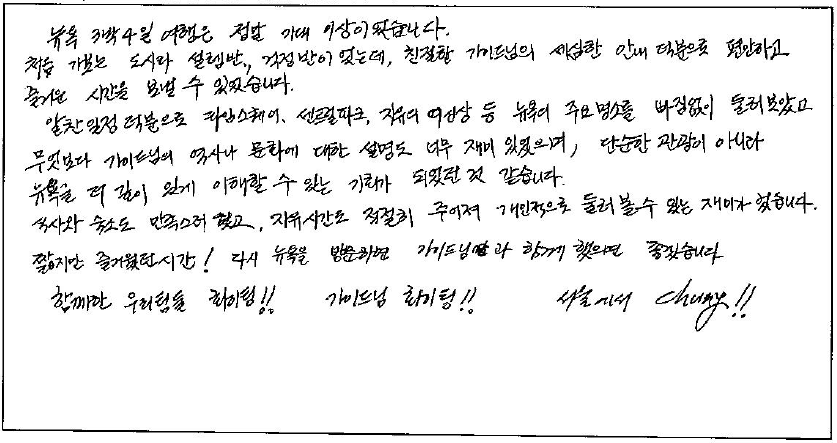 뉴욕 3박4일 여행은 정말 기대 이상이었습니다.
처음 가보는 도시라 설렘반, 걱정반이었는데, 친절한 가이드님의 세심한 안내 덕분으로 편안하고
즐거운 시간을 보낼 수 있었습니다.
알찬일정 덕분으로 타임스퀘어, 센트럴파크, 자유의 여신상 등 뉴욕의 주요명소를 빠짐없이 둘러보았고
무엇보다 가이드님의 역사나 문화에 대한 설명도 너무 재미 있었으며, 단순한 관광이 아니라
뉴욕을 더 깊이 있게 이해할 수 있는 기회가 되었던 것 같습니다.
식사와 숙소도 만족스러웠고, 자유시간도 적절히 주어져 개인적으로 둘러볼 수 있는 재미가 있었습니다.
짧지만 즐거웠던시간! 다시 뉴욕을 방문하면 가이드님과 함께 했으면 좋겠습니다
함께한 우리팀들 화이팅!! 가이드님 화이팅!! 서울에서 Chung!!